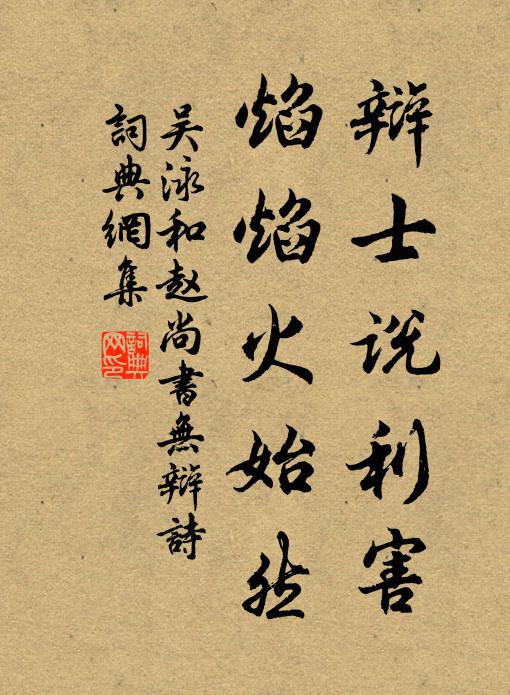 辯士说利害
焰焰火始然
吴泳和赵尚書無辯詩
詞典網集
詞典網印